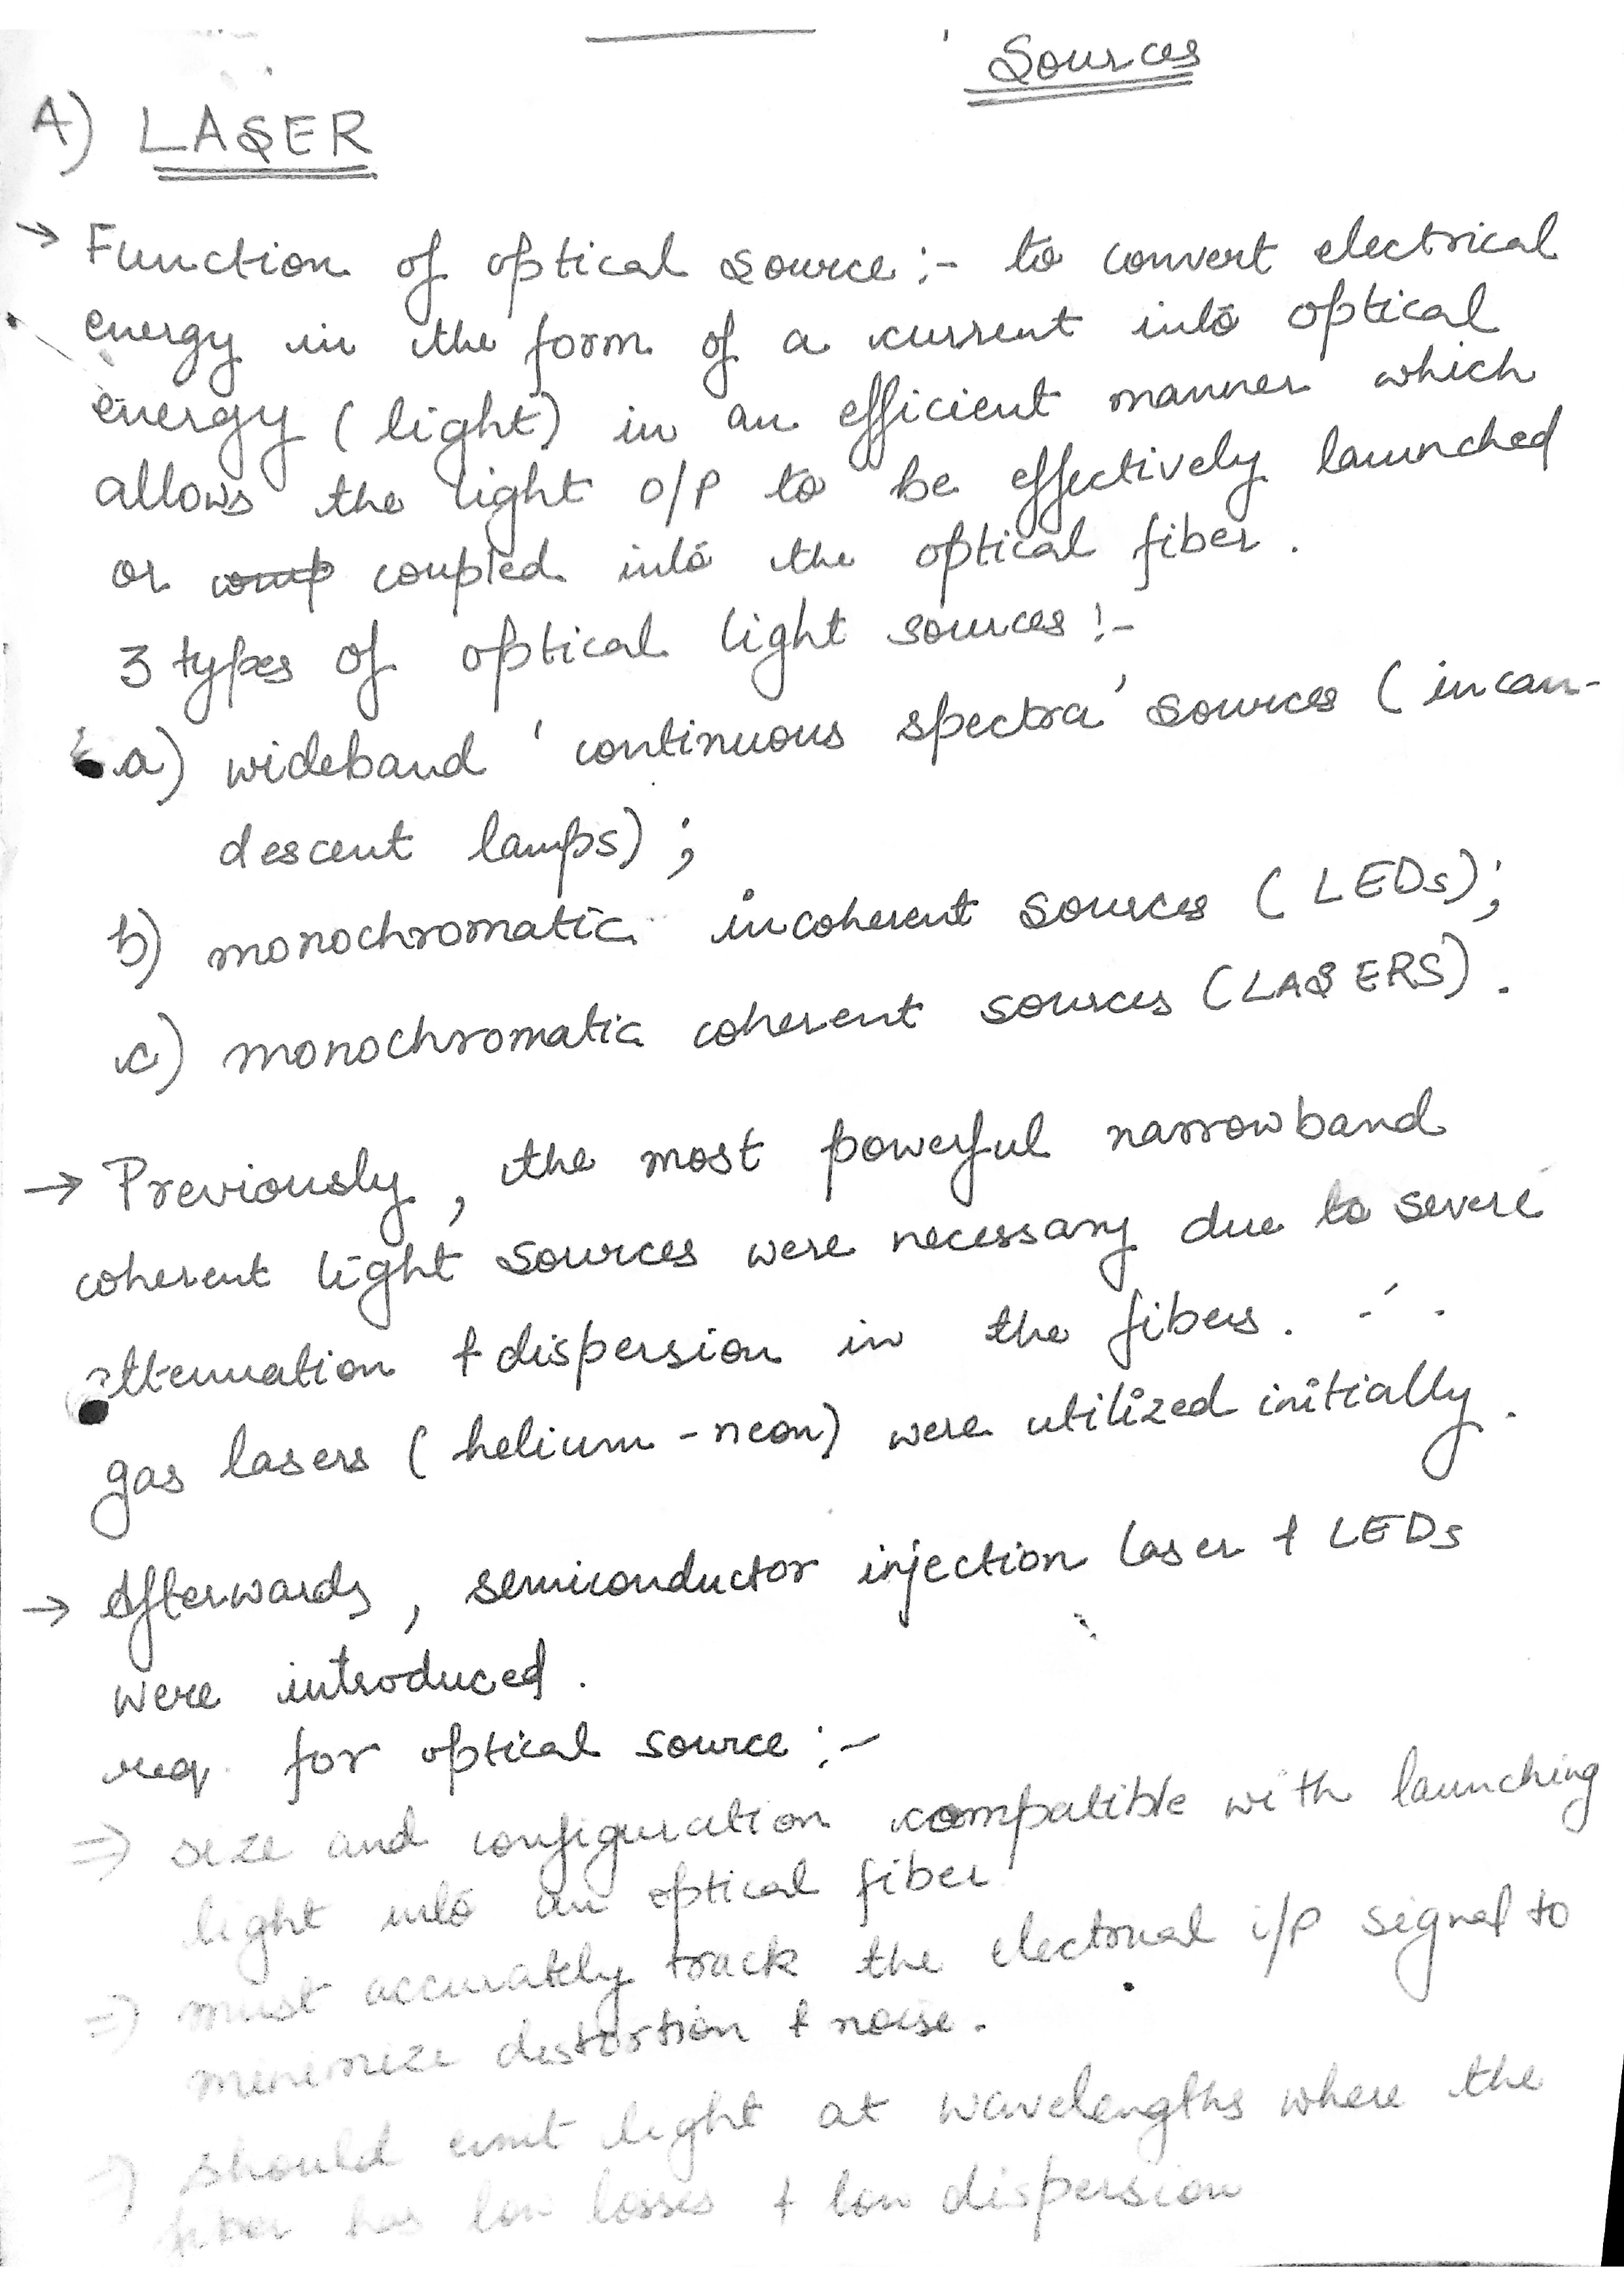 Sources
A) LASER
→ Function of optical source :- to convert electrical
energy in the form of a current into optical
energy (light) in an efficient manner which
allows the light o/p to be effectively launched
or coupled into the optical fiber.
3 types of optical light sources :-
a) wideband 'continuous spectra' sources (incan-
descent lamps) ;
b) monochromatic incoherent sources (LEDs);
c) monochromatic coherent sources (LASERS).
→ Previously, the most powerful narrowband
coherent light sources were necessary due to severe
attenuation & dispersion in the fibers. ∴
gas lasers (helium-neon) were utilized initially.
→ Afterwards, semiconductor injection laser & LEDs
were introduced.
req. for optical source :-
⇒ size and configuration compatible with launching
light into an optical fiber
⇒ must accurately track the electrical i/p signal to
minimize distortion & noise.
⇒ should emit light at wavelengths where the
fiber has low losses & low dispersion